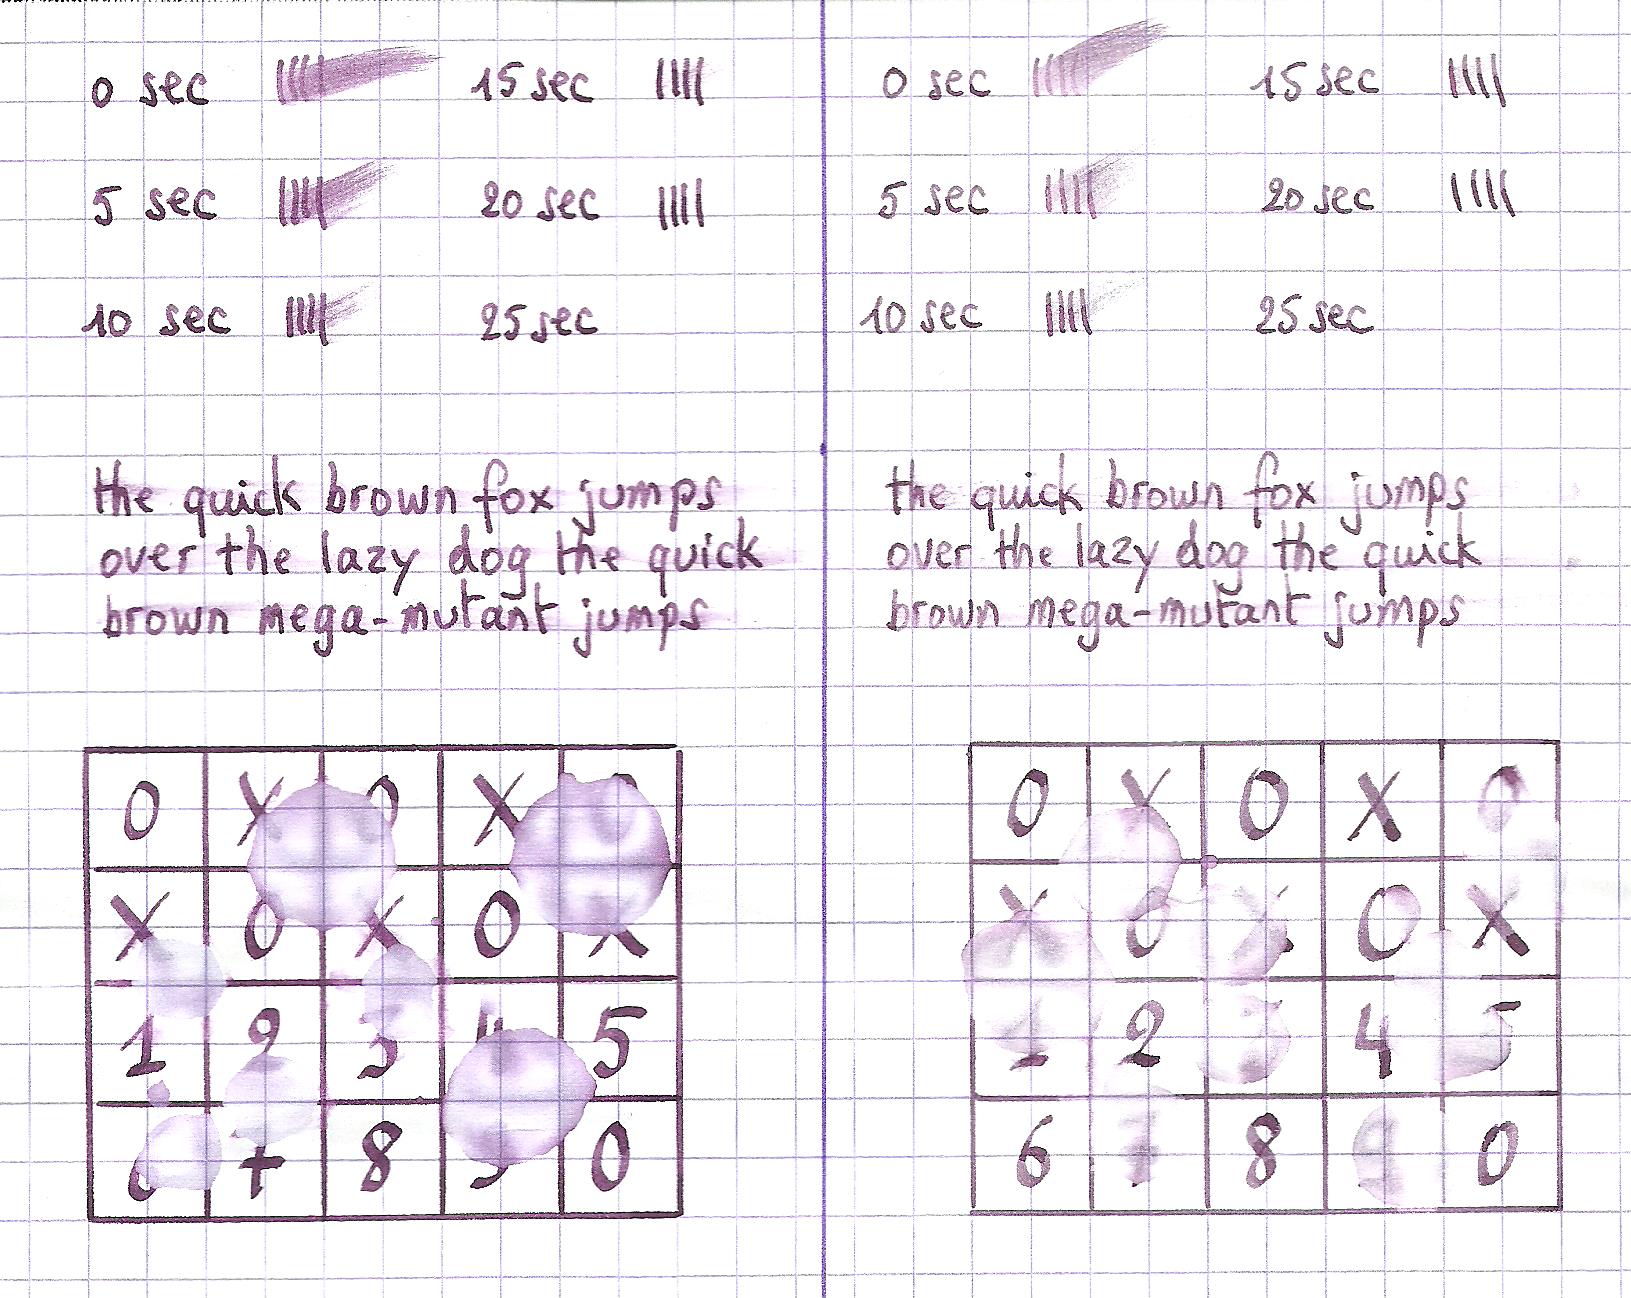 0 sec 15 sec
5 sec 20 sec
10 sec 25 sec
the quick brown fox jumps
over the lazy dog the quick
brown mega-mutant jumps
0 X 0 X
X 0 X 0 X
1 2 3 4 5
7 8 0
0 sec 15 sec
5 sec 20 sec
10 sec 25 sec
the quick brown fox jumps
over the lazy dog the quick
brown mega-mutant jumps
0 X 0 X 0
X 0 X 0 X
1 2 3 4 5
6 7 8 0